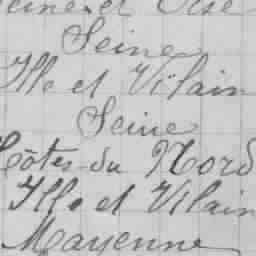 Seine et Oise
Seine
Ille et Vilain
Seine
Côtes-du Nord
Ille et Vilain
Mayenne